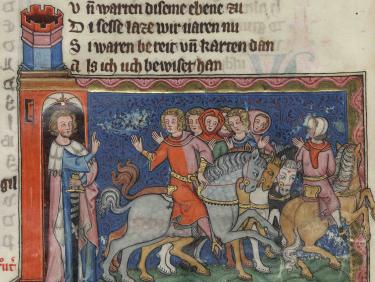 v n̄ warten diseme ebene zu
D i sesse laze wir uaren nu
S i waren bereit vn̄ karten dan
a ls ich uch bewiset han